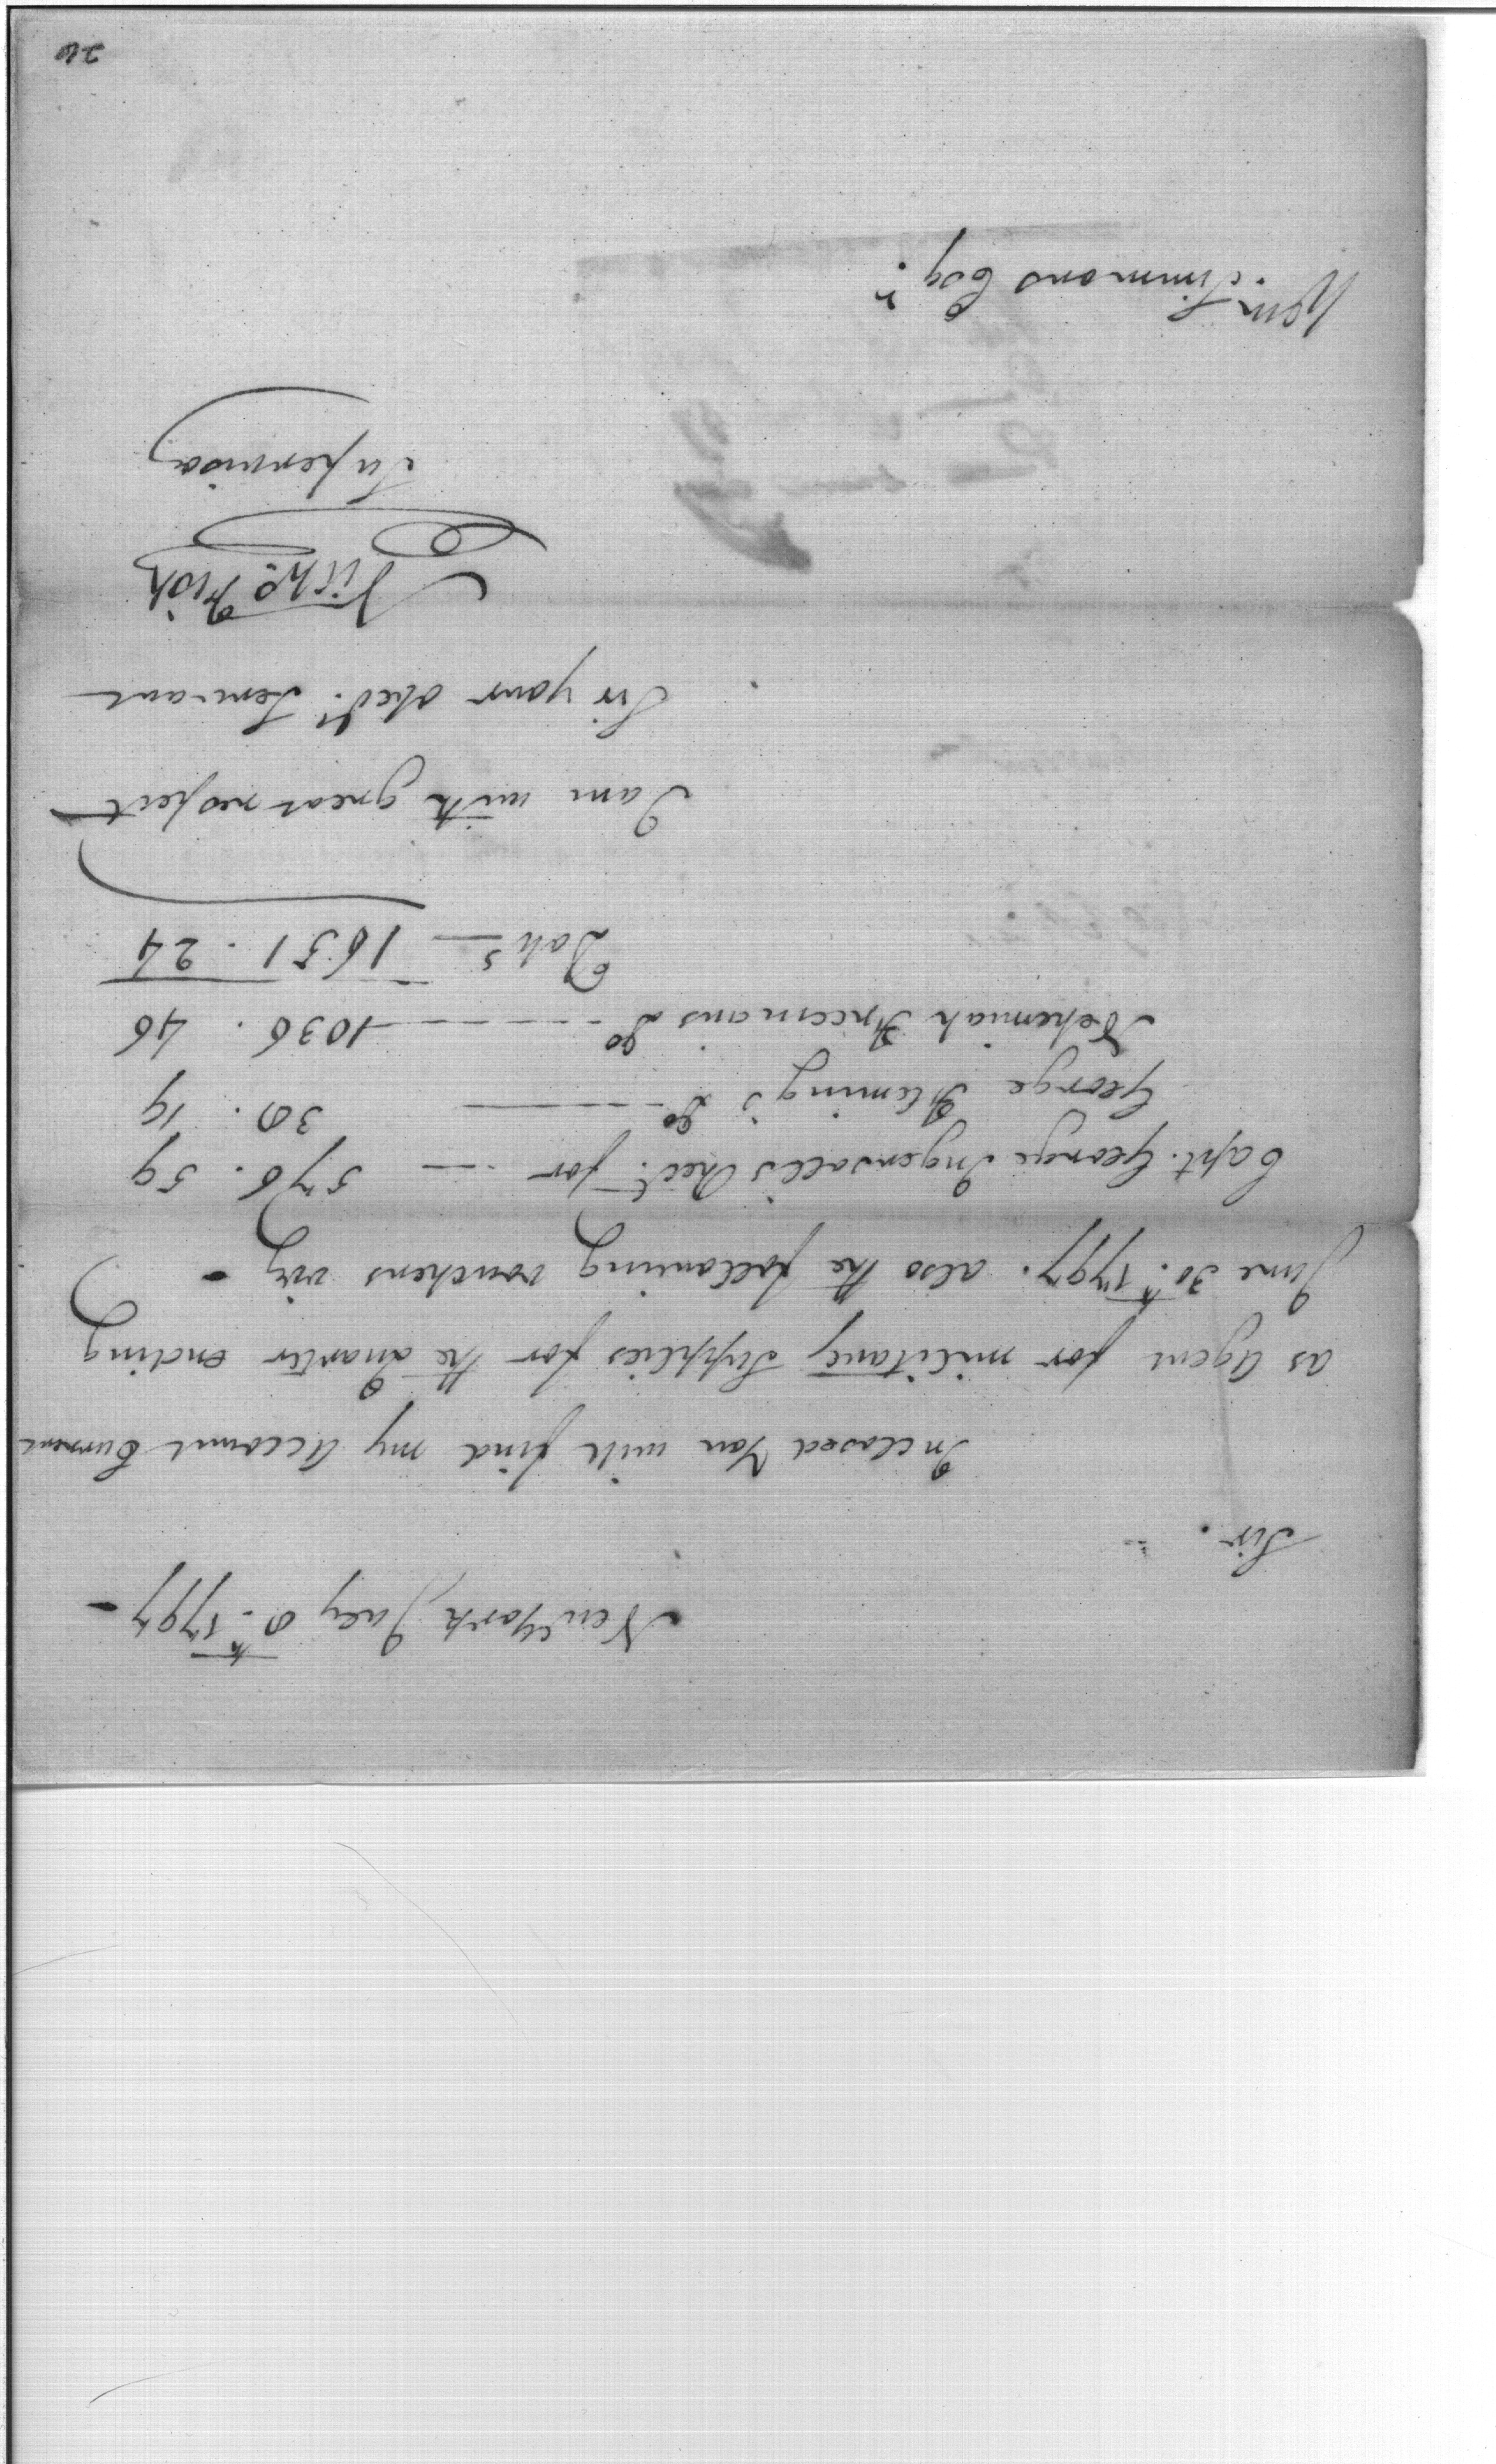 New York July 8th 1797 -
Sir.
Inclosed You will find my Account Current
as Agent for military Supplies for the Quarter ending
June 30th 1797. also the following vouchers viz -
Capt. George Ingersolls Rect. for -- 576. 59
George Fleming's Do ---- 38. 19
Nehemiah Freemans Do ---- 1036. 46
Dolls 1651. 24
I am with great respect
Sir your obedt. Servant
Nichs Fish
Supervisor
Wm. Simmons Esqr.